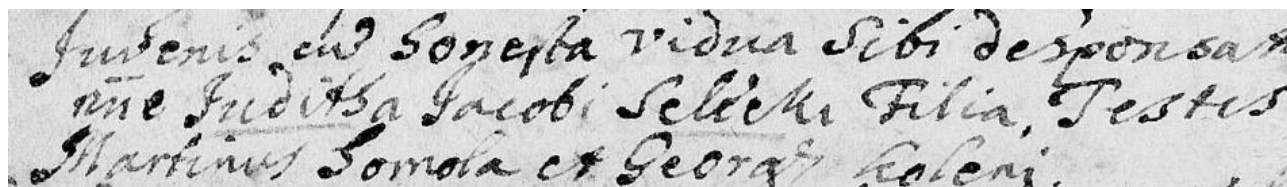 Juvenis cū honesta vidua Sibi desponsat
nn̄e Juditha Jacobi Seliek Filia, Testis
Martinus homola et Georg9 holeni.